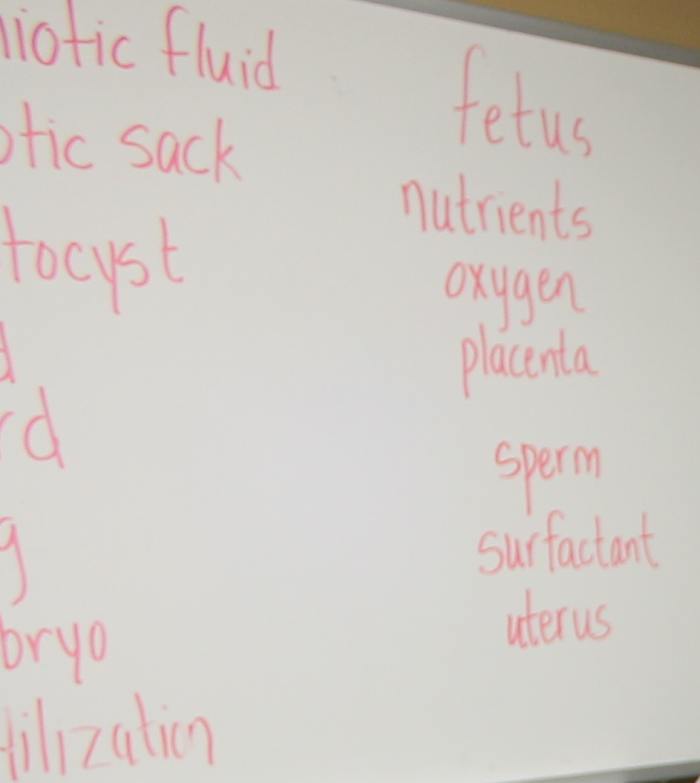 niotic fluid
otic sack
tocyst
d
rd
g
bryo
tilization
fetus
nutrients
oxygen
placenta
sperm
surfactant
uterus